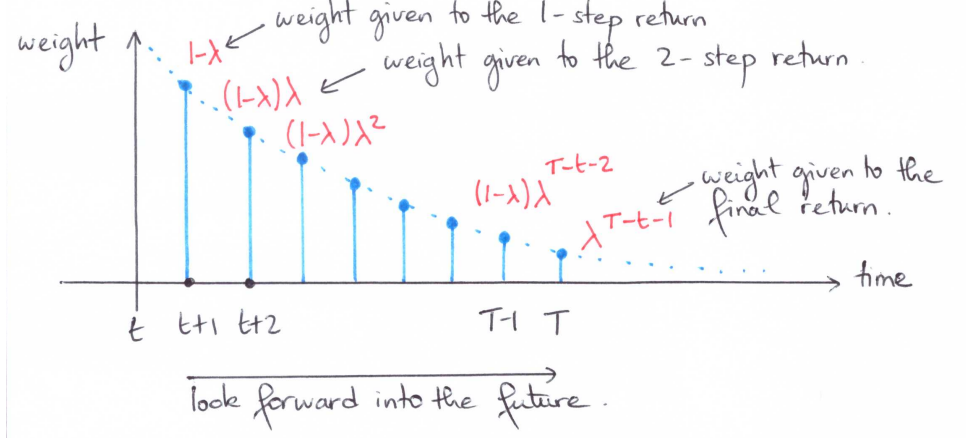 weight given to the 1-step return
weight
1-λ
weight given to the 2-step return.
(1-λ)λ
(1-λ)λ²
(1-λ)λ^T-t-2
weight given to the
final return.
λ^T-t-1
time
t t+1 t+2 T-1 T
look forward into the future.